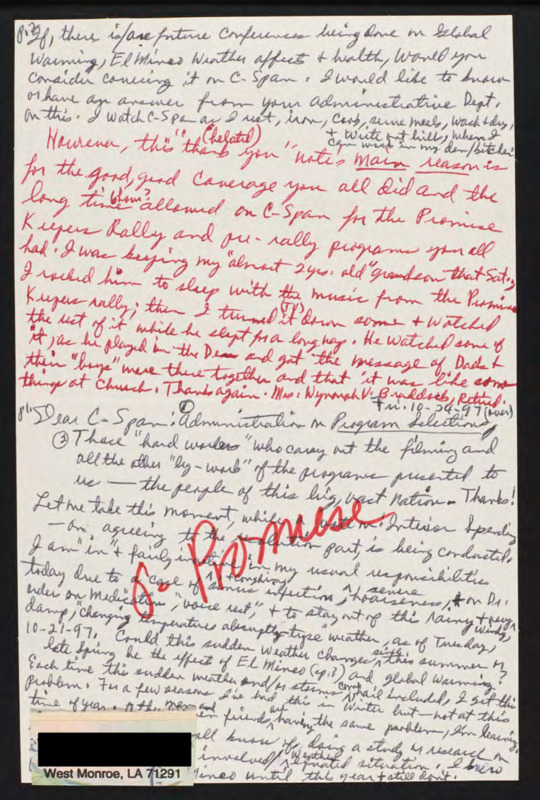 p.2) If, there is/are future Conferences being done on Global
Warming, El Mineo Weather affect & health, would you
consider covering it on C-Span. I would like to know
or have an answer from your Administrative Dept.
on this. I watch C-Span as I rest, iron, cook, serve meals, wash & dry,
& write out bills, when I
can work in my den/kitchen
However, this "(belated)
thank you" note's main reason is
for the good, good coverage you all did and the
long time allowed on C-Span for the Promise
Keepers Rally and pre-rally programs you all
had. I was keeping my "almost 2 yrs. old" grandson that Sat.,
I rocked him to sleep with the music from the Promise
Keepers rally; then I turned it (TV) down some & watched
the rest of it while he slept for a long nap. He watched some of
it, as he played in the Den and got the message of Dads &
their "boys" were there together and that it was like some
things at Church. Thanks again. Mrs. Wynonah V. Braddock, Retired.
Fri. 10-24-97 (over)
p.1) Dear C-Span: ① Administration on Program Selections
③ Those "hard workers" who carry out the filming and
all the other "by-work" of the programs presented to
us — the people of this big, vast Nation - Thanks!
Let me take this moment, while Interior Spending
- on agreeing to the part, is being conducted.
I am "in" & fairly in my usual responsibilities
today due to a case of sinus infection, severe
hoarseness, & on Dr.
orders on Medication, "voice rest" & to stay out of this rainy &
windy,
damp, "changing temperatures abruptly type" weather, as of Tuesday,
10-21-97. Could this sudden weather changes, this summer or
late Spring be the effect of El Mineo (sp.?) and global warming?
Each time this sudden weather and/or storms come, hail included, I get this
problem. For a few seasons I've had this in Winter but — not at this
time of year. Other men and
friends having the same problem, I'm learning.
all know if doing a study or research on
involved weather situation. I knew
Mineo until this year & still don't.
J. Promese
West Monroe, LA 71291